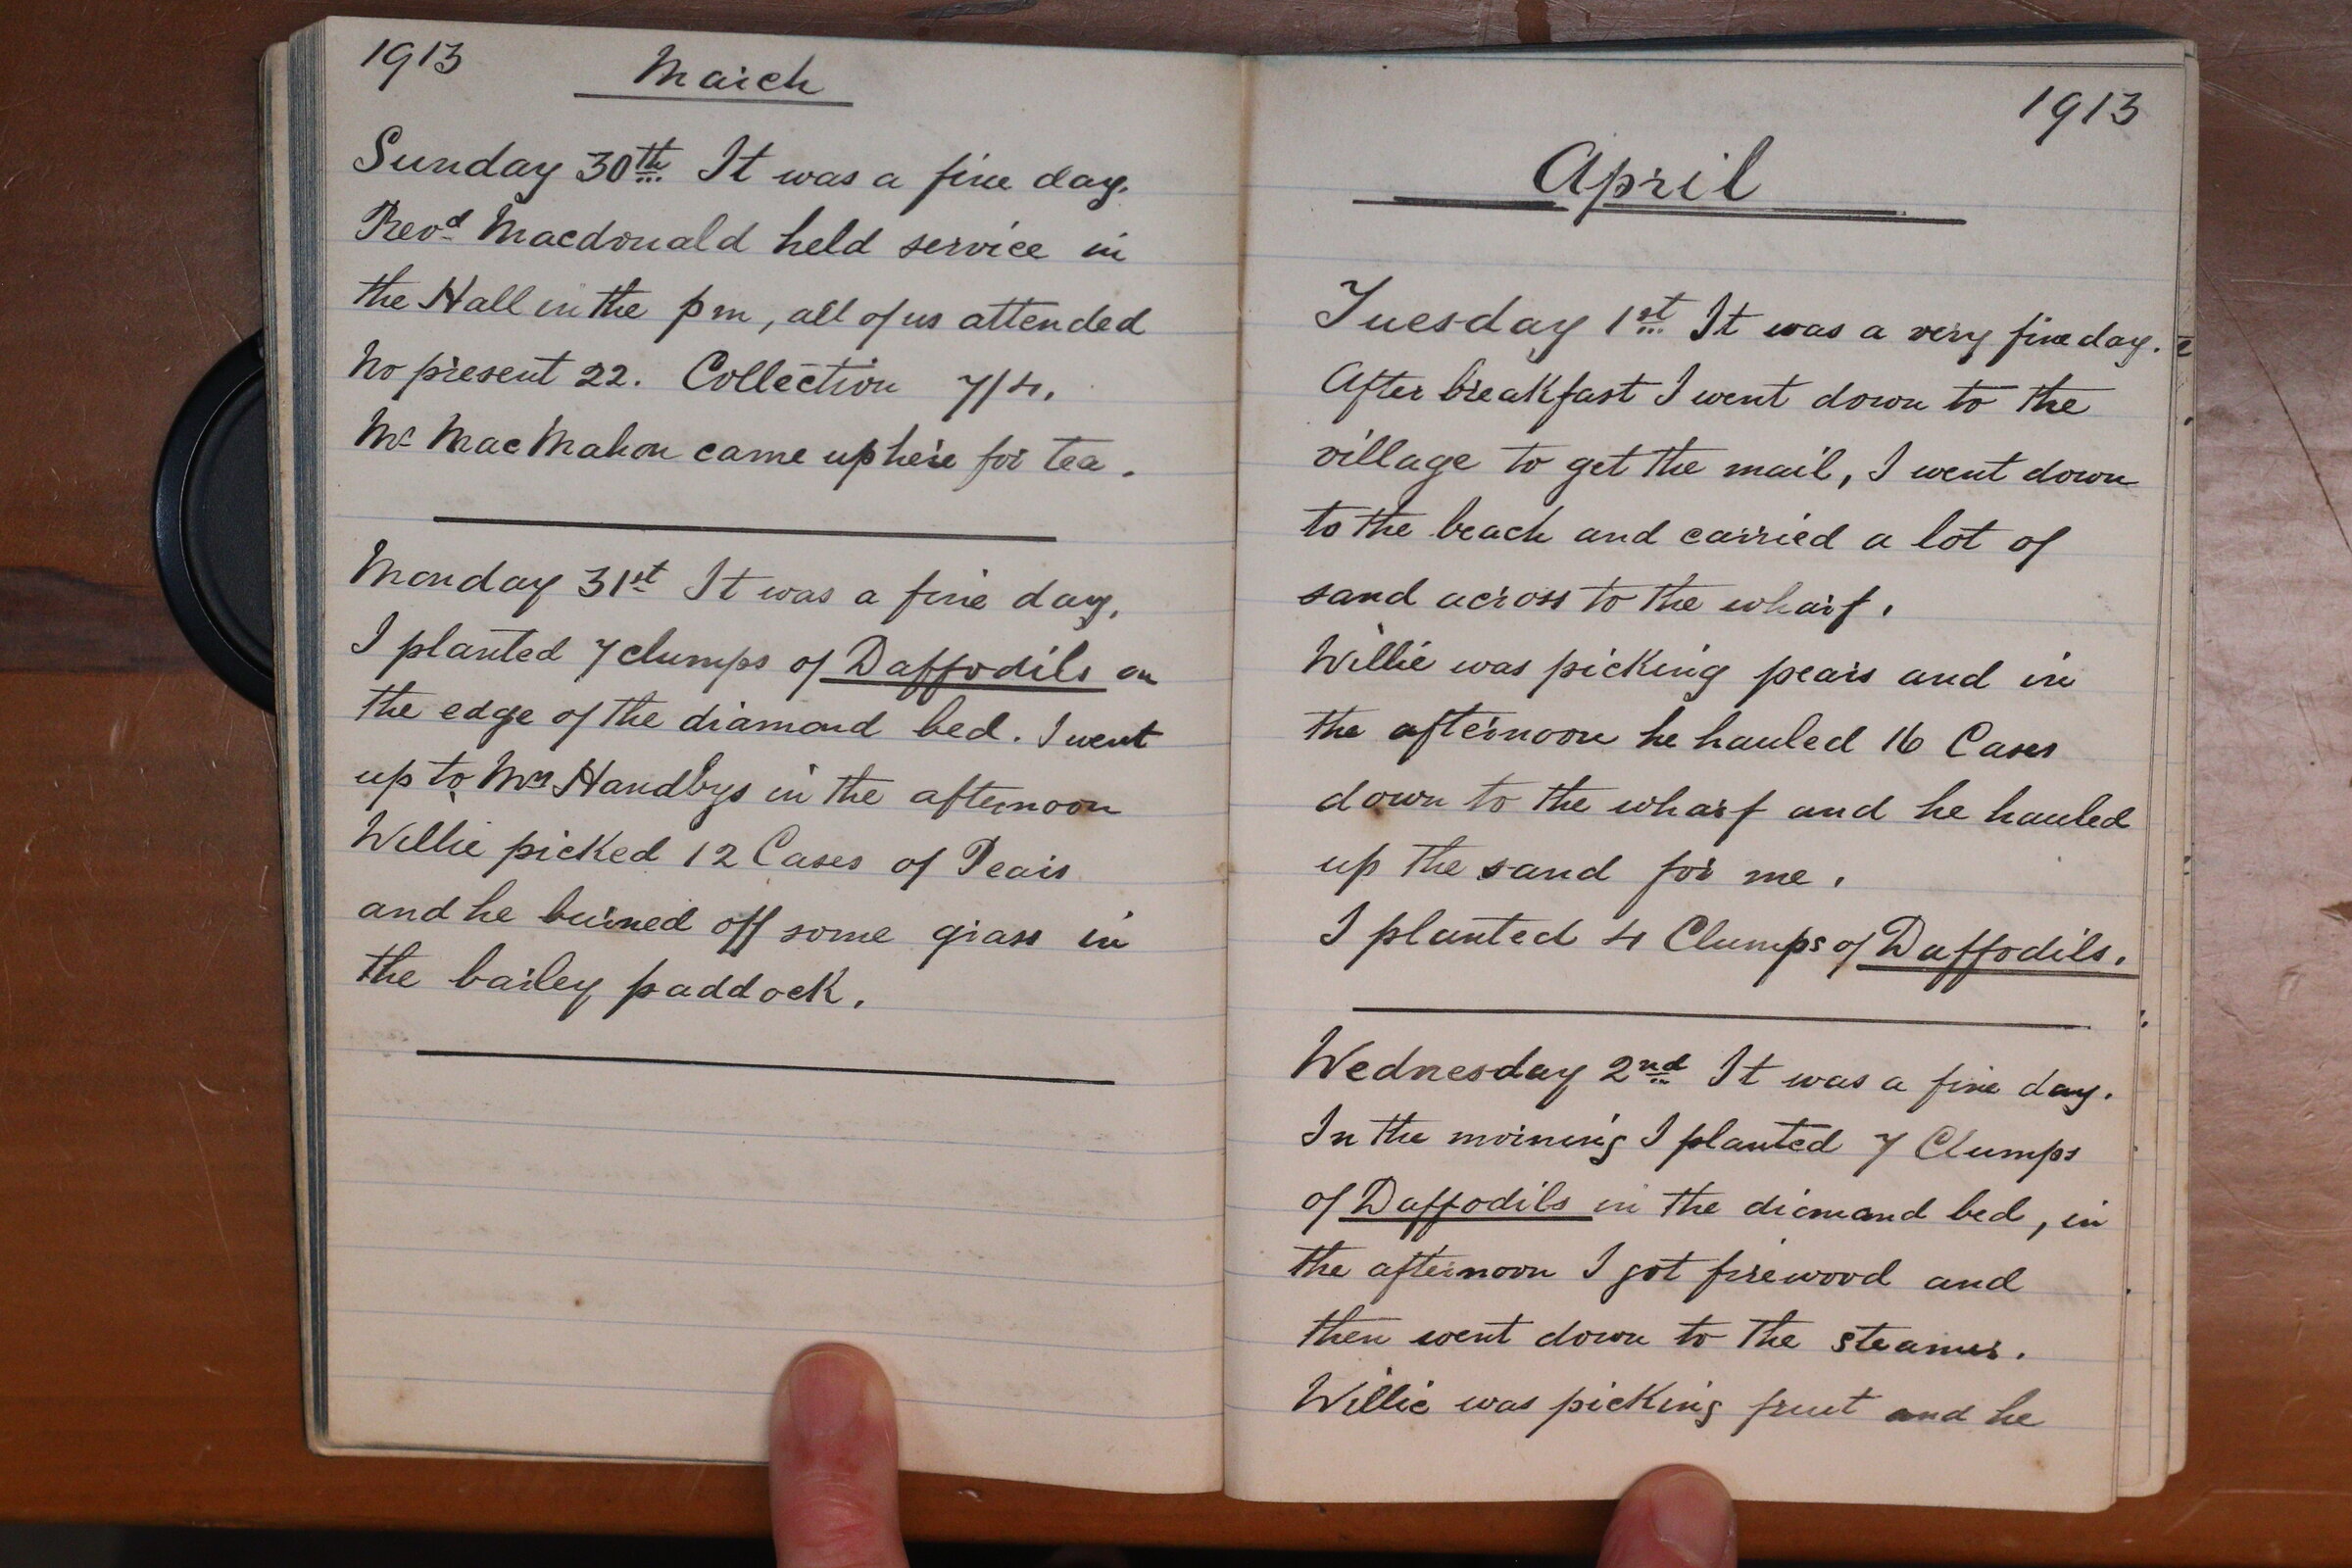 1913
March
Sunday 30th It was a fine day.
Revd Macdonald held service in
the Hall in the pm, all of us attended
No present 22. Collection 7/4.
Mr MacMahon came up here for tea.
Monday 31st It was a fine day,
I planted 7 clumps of Daffodils on
the edge of the diamond bed. I went
up to Mrs Handbys in the afternoon
Willie picked 12 Cases of Pears
and he burned off some grass in
the barley paddock.
1913
April
Tuesday 1st It was a very fine day.
After breakfast I went down to the
village to get the mail, I went down
to the beach and carried a lot of
sand across to the wharf.
Willie was picking pears and in
the afternoon he hauled 16 Cases
down to the wharf and he hauled
up the sand for me.
I planted 4 Clumps of Daffodils.
Wednesday 2nd It was a fine day.
In the morning I planted 7 Clumps
of Daffodils in the diamand bed, in
the afternoon I got firewood and
then went down to the steamer.
Willie was picking fruit and he